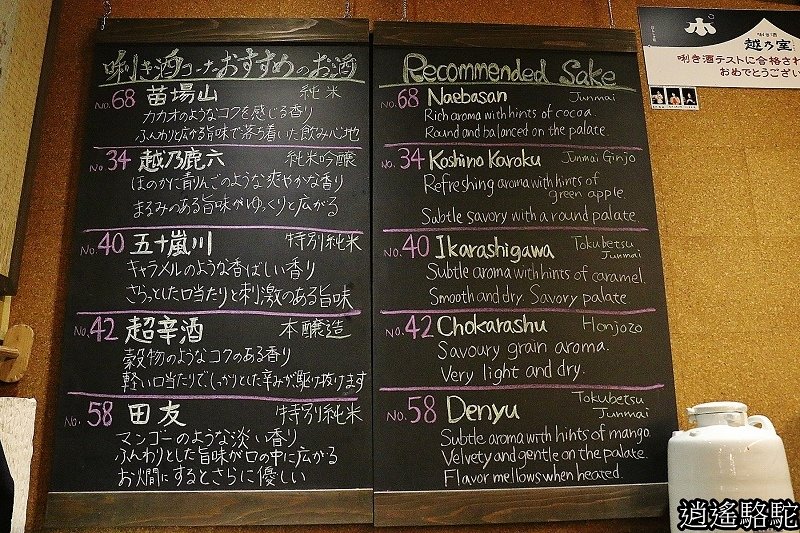 唎き酒コーナーおすすめのお酒
No.68 苗場山 純米
カカオのようなコクを感じる香り
ふんわりと広がる旨味で落ち着いた飲み心地
No.34 越乃鹿六 純米吟醸
ほのかに青りんごのような爽やかな香り
まるみのある旨味がゆっくりと広がる
No.40 五十嵐川 特別純米
キャラメルのような香ばしい香り
さらっとした口当たりと刺激のある旨味
No.42 超辛酒 本醸造
穀物のようなコクのある香り
軽い口当たりで、しっかりとした辛みが駆け抜けます
No.58 田友 特別純米
マンゴーのような淡い香り
ふんわりとした旨味が口の中に広がる
お燗にするとさらに優しい
Recommended Sake
No.68 Naebasan Junmai
Rich aroma with hints of cocoa.
Round and balanced on the palate.
No.34 Koshino Karoku Junmai Ginjo
Refreshing aroma with hints of
green apple.
Subtle savory with a round palate.
No.40 Ikarashigawa Tokubetsu
Junmai
Subtle aroma with hints of caramel.
Smooth and dry. Savory palate
No.42 Chokarashu Honjozo
Savoury grain aroma.
Very light and dry.
No.58 Denyu Tokubetsu
Junmai
Subtle aroma with hints of mango.
Velvety and gentle on the palate.
Flavor mellows when heated.
唎き酒
越乃室
唎き酒テストに合格され
おめでとうござい
逍遙駱駝